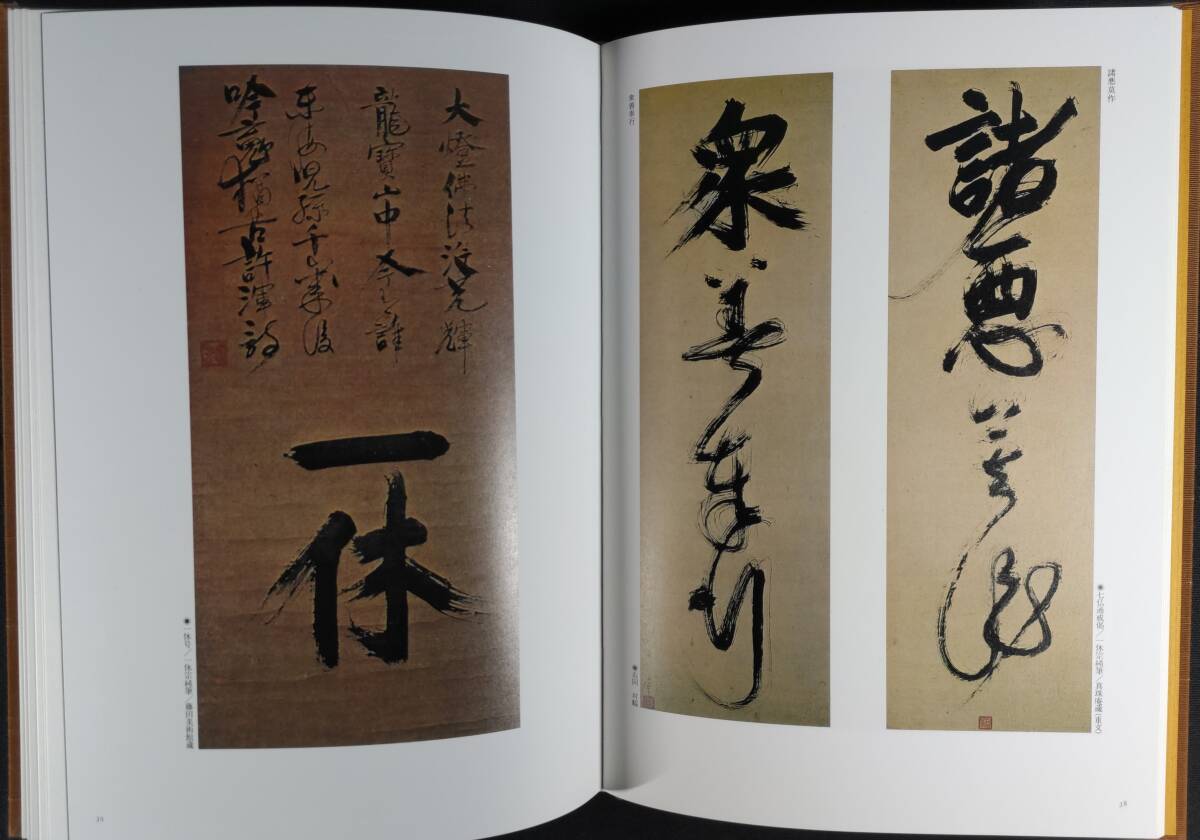 諸悪莫作
諸悪莫作
◉七仏通戒偈/一休宗純筆/真珠庵蔵(重文)
衆善奉行
衆善奉行
◉右同 対幅
28
大燈佛法没光輝
龍寶山中今之誰
東海児孫千歳後
吟魂猶苦許渾詩
一休
◉一休号/一休宗純筆/藤田美術館蔵